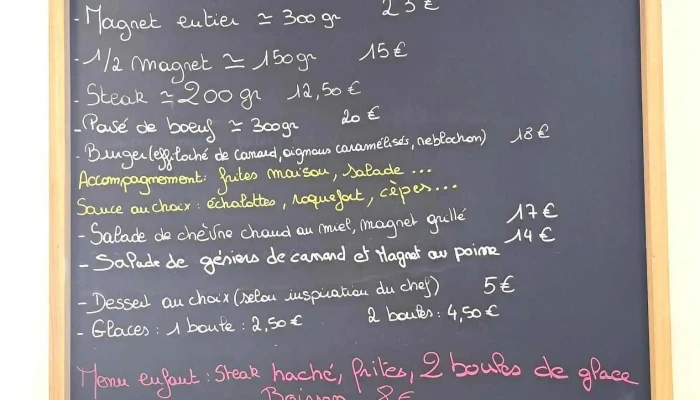 - Magret entier ≃ 300gr 23€
- 1/2 magret ≃ 150gr 15€
- Steak ≃ 200gr 12,50€
- Pavé de boeuf ≃ 300gr 20€
- Burger (effiloché de canard, oignons caramélisés, reblochon) 18€
Accompagnement: frites maison, salade ...
Sauce au choix : échalottes, roquefort, cèpes...
- Salade de chèvre chaud au miel, magret grillé 17€
- Salade de gésiers de canard et Magret au poivre 14€
- Dessert au choix (selon inspiration du chef) 5€
- Glaces : 1 boule : 2,50€ 2 boules : 4,50€
Menu enfant : Steak haché, frites, 2 boules de glace
Boisson 8€